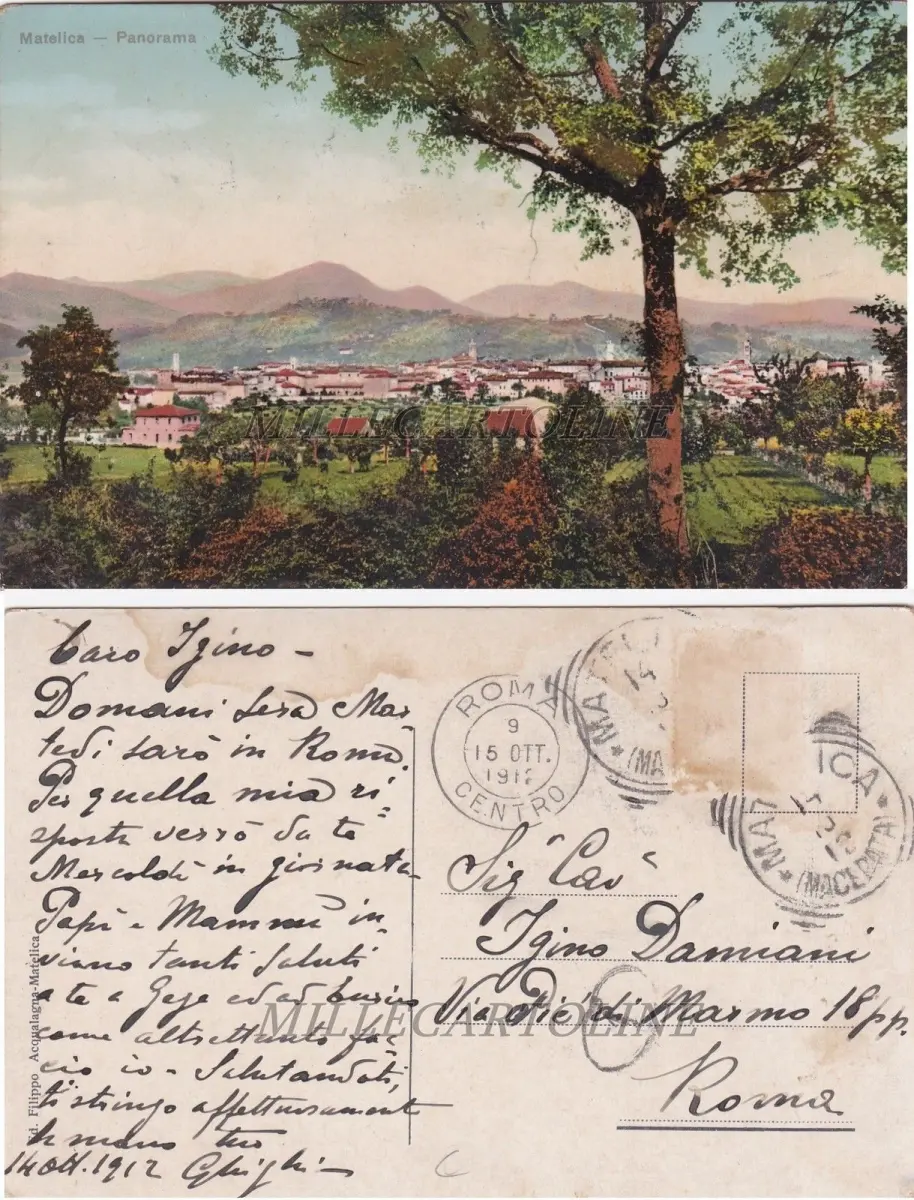 Matelica — Panorama
MILLECARTOLINE
Caro Igino —
Domani sera Mar
tedì sarò in Roma.
Per quella mia ri=
sposta verrò da te
Mercoldì in giornata
Papà e Mammà in=
viano tanti saluti
a te a Gege ed ad
come altrettanto fac
cio io — Salutandoti,
ti stringo affettuosamente
la mano tuo
14 ott. 1912 Ghighi
Ed. Filippo Acqualagna-Matelica
ROMA
9
15 OTT.
1912
CENTRO
MAT
14
(MA
MAT ICA
14
12
(MACERATA)
Sig "Cav"
Igino Damiani
Via Piè di Marmo 18 pp.
Roma
MILLECARTOLINE